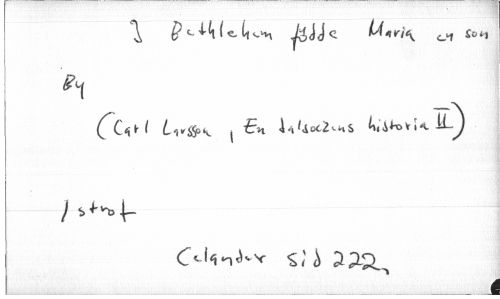 I Bethlehem födde Maria en son
By
(Carl Larsson, En dalsockens historia II)
1 strof
Celander sid 222,